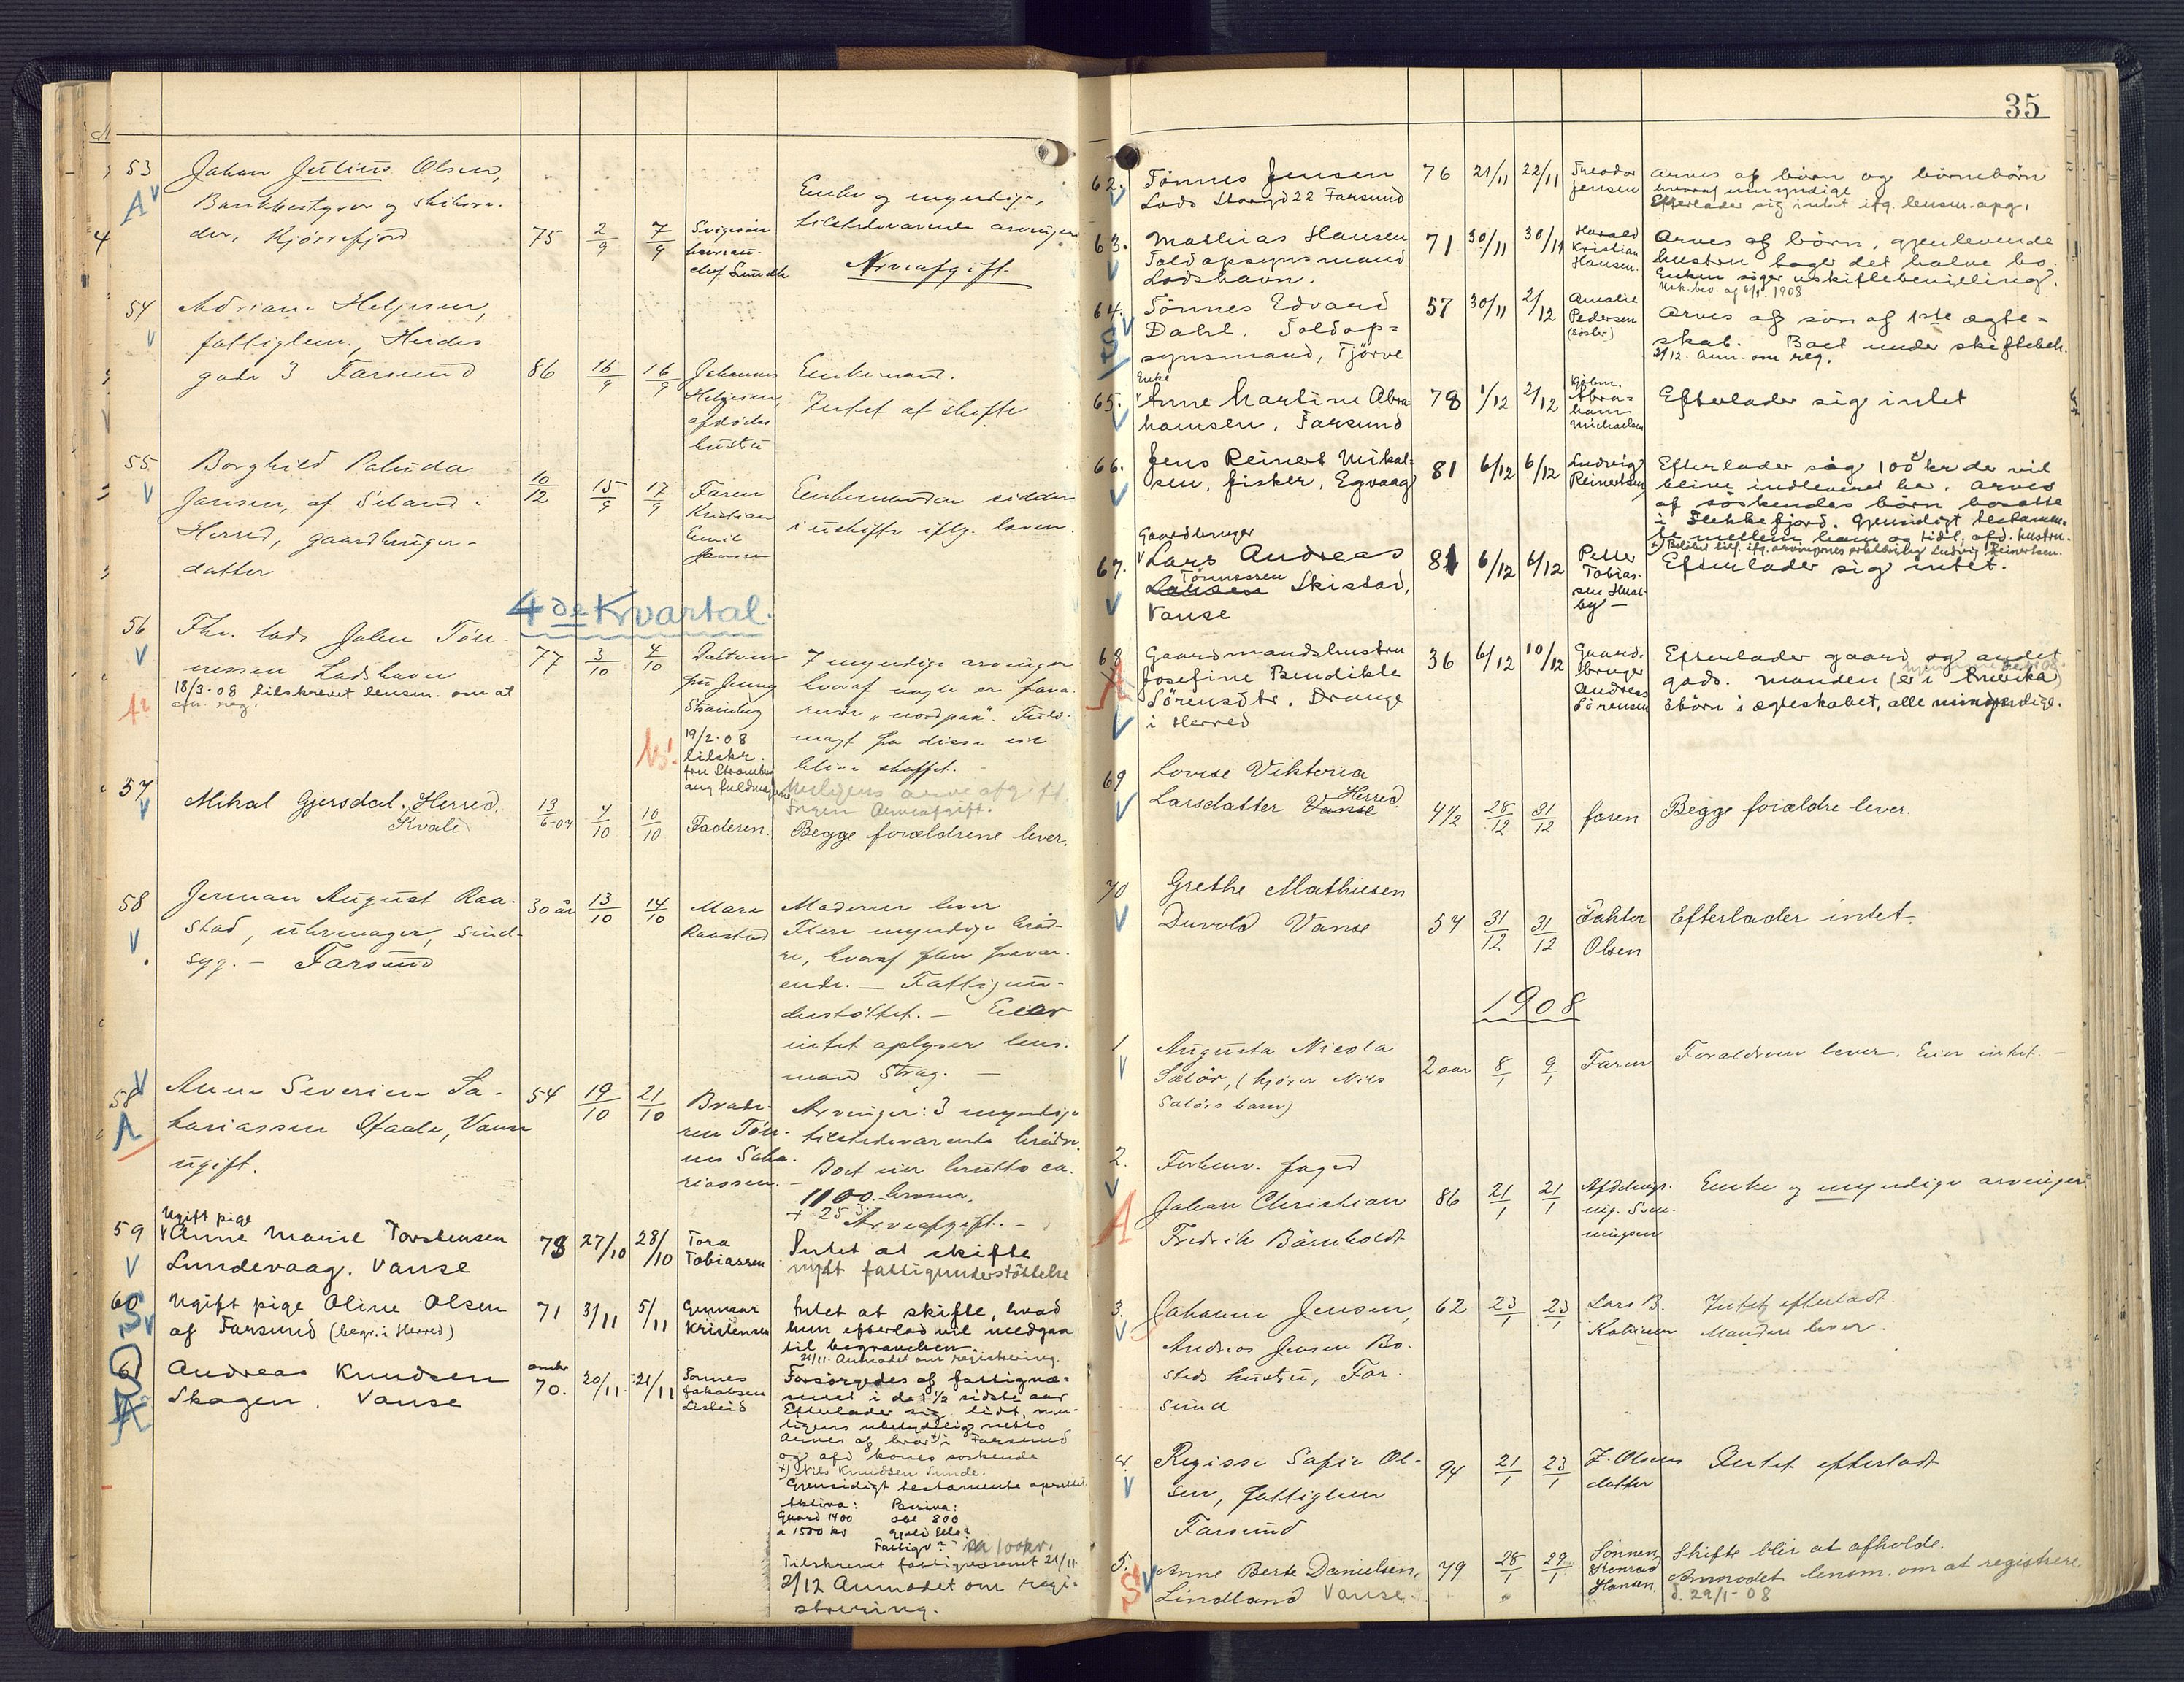 53 Johan Julius Olsen,
Bankbestyrer og skibsre-
der, Kjørrefjord 75 2/9 7/9 Svigersøn
Olaf Sundt
Enke og myndige,
tilstedeværende arvinger
Arveafgift.
54 Adriane Helgesen,
fattiglem, Heides
gade 3 Farsund 86 16/9 16/9 Johannes
Helgesen,
afdødes
hustru
Enkemand.
Intet at skifte
55 Borghild Paluda
Jansen, af Sæland i
Herred, gaardbruger-
datter
10/12 15/9 17/9 Faren
Kristian
Emil
Jansen
Enkemanden sidder
i uskifte iflg. loven.
4de Kvartal.
56 Fhv. lods John Tøn-
nessen Lodshavn 77 3/10 4/10
18/3-08 tilskrevet lensm. om at
afh. reg.
Datteren
fru Jenny
Strømberg
19/2-08
tilskr.
fru Strømberg
ang fuldmagterne
7 myndige arvinger
hvoraf nogle er fravæ-
rende "nordpaa". Fuld-
magt fra disse vil
blive skaffet.
Muligens arveafgift.
Ingen Arveafgift.
57 Mikal Gjersdal. Herred.
Kvale
13/6-04 4/10 10/10 Faderen. Begge forældrene lever.
58 Jerman August Raa-
stad, uhrmager, sind-
syg. - Farsund
30 år 13/10 14/10 Mare
Raastad
Moderen lever
Flere myndige brød-
re, hvoraf flere fravær-
ende. - Fattigun-
derstøttet. - Eier
intet oplyser lens-
mand Stray. -
58 Anne Severine Sa-
kariassen Ofaale, Vanse
ugift.
54 19/10 21/10 Brode-
ren Tøn-
nes Saka-
riassen. -
Arvinger: 3 myndige
tilstedeværende brødre.
Boet eier brutto ca.
1100 kroner.
Arveafgift. -
59 Ugift pige
Anne Marie Torstensen
Lundevaag. Vanse
78 27/10 28/10 Tora
Tobiassen
Intet at skifte
nydt fattigunderstøttelse
60 Ugift pige Oline Olsen
af Farsund (begr. i Herred)
71 3/11 5/11 Gunnar
Kristensen
Intet at skifte, hvad
hun efterlod vil medgaa
til begravelsen.
21/11 Anmodet om registrering.
61 Andreas Knudsen
Skagen, Vanse
omkr
70. 20/11 21/11 Tønnes
Jakobsen
Lisleid
Forsørgedes af fattigvæ-
snet i de 1½ sidste aar
Efterlader sig lidt, mu-
ligens ubetydelig netto
Arves af bror +) i Farsund
og afd kones søskende
+) Nils Knudsen Sunde.
Gjensidigt testamente oprettet
Aktiva: Passiva:
Gaard 1400 obl 800
a 1500 kr gjæld Lele?
Fattigv? ca 100 kr.
Tilskrevet fattigvæsenet 21/11
2/12 Anmodet om regi-
strering.
35
62. Tønnes Jensen 76 21/11 22/11 Theodor
Jensen
Lods Storgd 22 Farsund
Arves af børn og børnebørn
hvoraf umyndige
Efterlader sig intet ifg. lensm. opg.
63. Mathias Hansen
Toldopsynsmand
Lodshavn.
71 30/11 30/11 Harald
Kristian
Hansen.
Arves af børn, gjenlevende
hustru tager det halve bo.
Enken søger uskiftebevilling.
Usk. bev. af 6/1 1908
64. Tønnes Edvard
Dahl. Toldop-
synsmand, Tjørve
57 30/11 2/12 Amalie
Pedersen
(søster)
Arves af søn af 1ste ægte-
skab. Boet under skiftebeh.
2/12. Anm. om reg.
65. Enke
Anne Martine Abra-
hamsen. Farsund
78 1/12 2/12 Kjøbm.
Abra-
ham
Michaelsen
Efterlader sig intet
66. Jens Reinert Mikal-
sen, fisker, Egvaag
81 6/12 6/12 Ludvig
Reinertsen
Efterlader sig 100 kr de vil
blive indleveret her. Arves
af søskendes børn bosatte
i Flekkefjord. Gjensidigt testamen-
te mellem ham og tidl. afd. hustru.
+) Beløbet tilf. ifg. arvingernes erklæring Ludvig Reinertsen.
67. Gaardbruger
Lars Andreas
Tønnessen Skistad,
Vanse
81 6/12 6/12 Peder
Tobias-
sen Huse-
by
Efterlader sig intet.
68 Gaardmandshustru
Josefine Bendikte
Sørensdtr. Drange
i Herred
36 6/12 10/12 Gaard-
bruger
Andreas
Sørensen
Efterlader gaard og andet
gods. Manden (er i Amerika)
børn i ægteskabet, alle umyndige.
69 Lovise Viktoria
Larsdatter Vanse Herred.
4½ 28/12 31/12 faren Begge forældre lever.
70 Grethe Mathiesen
Duvold Vanse
54 31/12 31/12 Faktor
Olsen
Efterlader intet.
1908
1 Augusta Nicola
Salør, (kjører Nils
Saløis barn)
2 aar 8/1 9/1 Faren Forældrene lever. Eier intet. -
2. Forhenv. foged
Johan Christian
Fredrik Bärnholdt
86 21/1 21/1 Afdelings-
ing. Sven-
ningsen
Enke og myndige arvinger
3. Johanne Jensen,
Andreas Jensen Bo-
steds hustru, Far-
sund
62 23/1 23/1 Lars B.
Intet efterladt.
Manden lever.
4. Regisse Sofie Ol-
sen, fattiglem
Farsund
94 21/1 23/1 Z. Olsens
datter
Intet efterladt
5. Anne Berte Danielsen,
Lindland Vanse.
79 28/1 29/1 Sønnen
Konrad
Hansen.
Skifte blir at afholde.
Anmodet lensm. om at registrere
d. 29/1-08